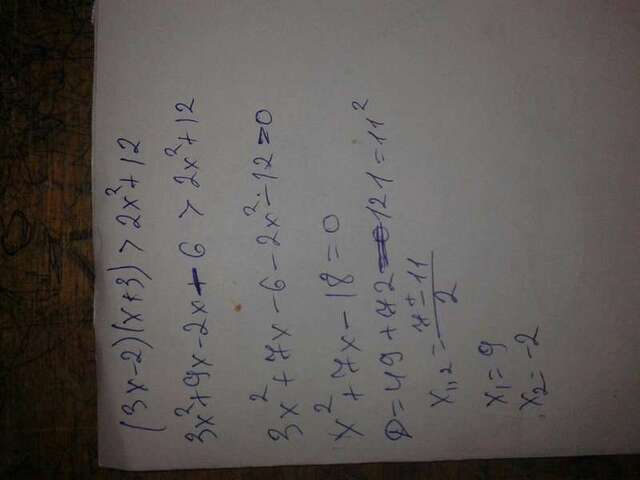 (3x-2)(x+3) > 2x²+12
3x²+9x-2x-6 > 2x²+12
3x²+7x-6-2x²-12=0
x²+7x-18=0
D=49+72=121=11²
x₁,₂=7±11/2
x₁=9
x₂=-2